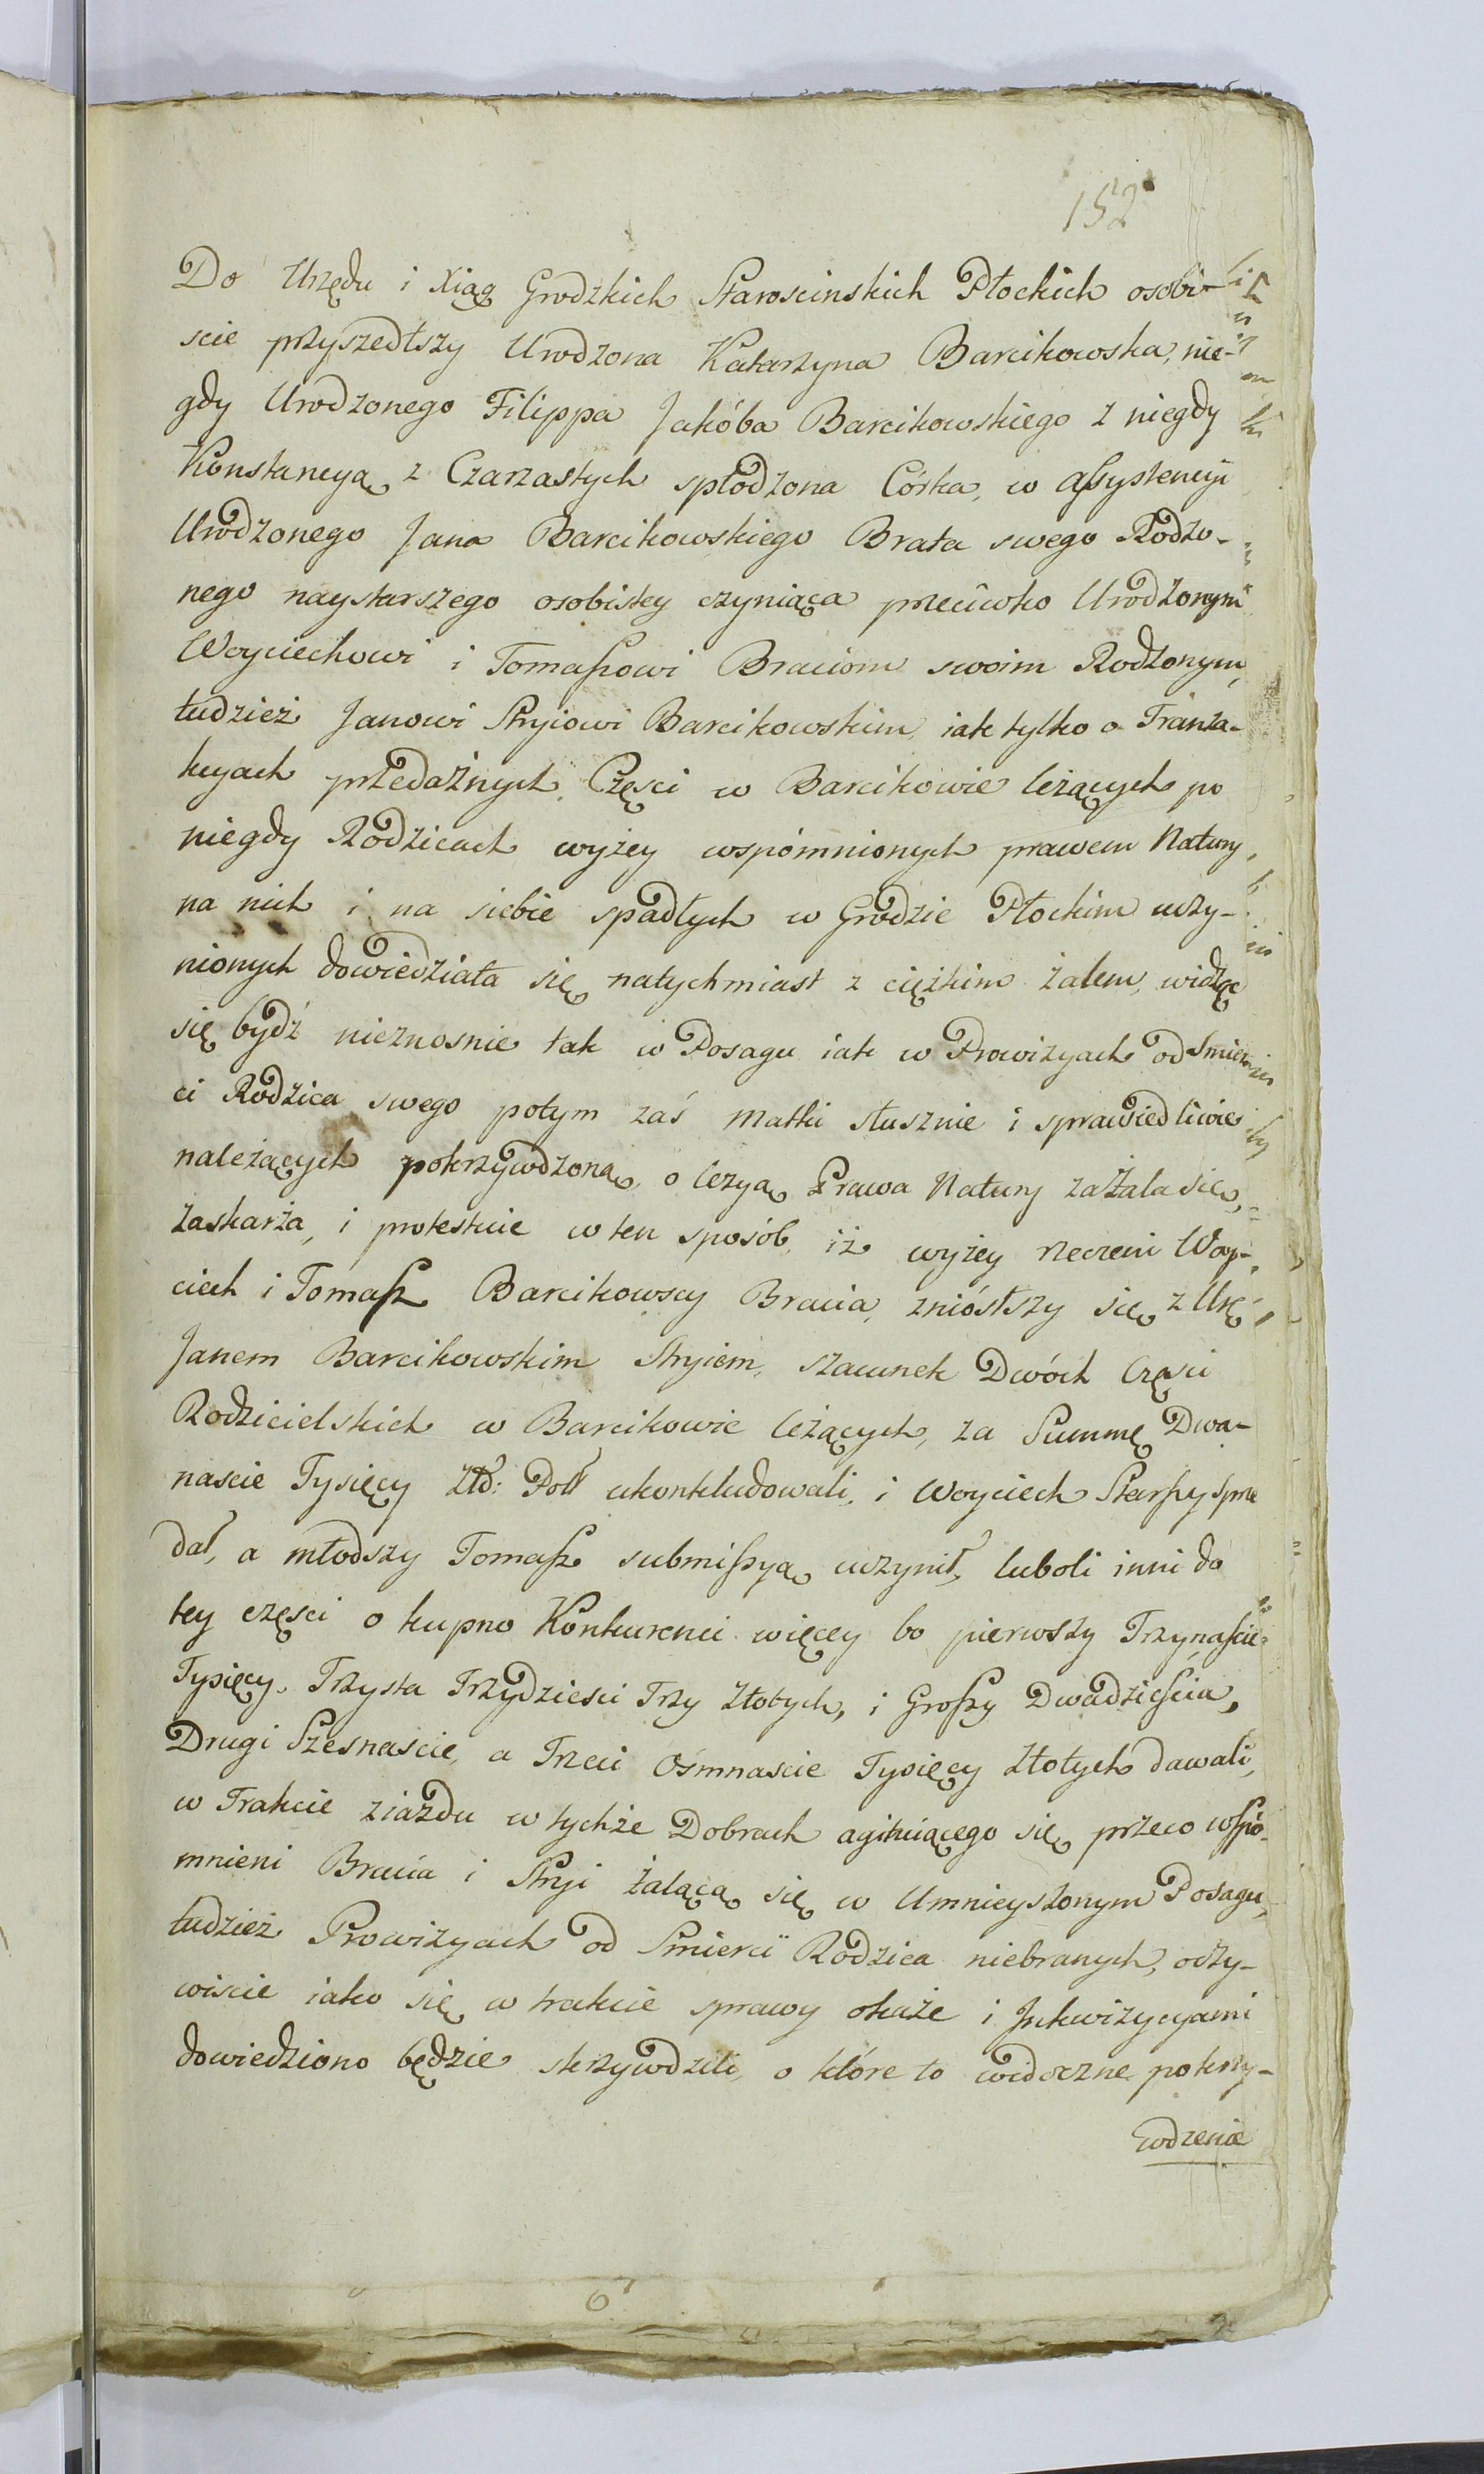 152
Do Urzędu i Xiąg Grodzkich Staroscinskich Płockich osobi-
scie przyszedłszy Urodzona Katarzyna Barcikowska, nie-
gdy Urodzonego Filippa Jakóba Barcikowskiego z niegdy
Konstancyą z Czarzastych spłodzona Córka, w assystencyi
Urodzonego Jana Barcikowskiego Brata swego Rodzo-
nego naystarszego osobistey czyniąca przeciwko Urodzonym
Woyciechowi i Tomaszowi Braciom swoim Rodzonym,
tudzież Janowi Stryiowi Barcikowskim iak tylko o Tranza-
kcyach przedażnych Częsci w Barcikowie leżących po
niegdy Rodzicach wyżey wspomnionych prawem Natury,
na nich i na siebie spadłych w Grodzie Płockim uczy-
nionych dowiedziała się natychmiast z ciężkim żalem, widząc
się bydź nieznosnie tak w Posagu iak w Prowizyach od Smier-
ci Rodzica swego potym zaś Matki słusznie i sprawiedliwie
należących pokrzywdzoną, o lezyą Prawa Natury zażala się,
zaskarża, i protestuie w ten sposób, iż wyżey rzeczeni Woy-
ciech i Tomasz Barcikowscy Bracia, zniósłszy się z Urę
Janem Barcikowskim Stryiem, szacunek Dwóch Częsci
Rodzicielskich w Barcikowie leżących, za Summę Dwa-
nascie Tysięcy Złł: Poll ukonkludowali, i Woyciech Starszy sprze
dał, a młodszy Tomasz submissyą uczynił, luboli inni do
tey częsci o kupno Konkurenci więcey bo pierwszy Trzynaście
Tysięcy, Trzysta Trzydziesci Trzy Złotych, i Groszy Dwadziescia,
Drugi Szesnascie, a Trzeci Ośmnascie Tysięcy Złotych dawali,
w Trakcie ziazdu w tychże Dobrach agituiącego się, przeco wspo-
mnieni Bracia i Stryi żalącą się w Umnieyszonym Posagu,
tudzież Prowizyach od Smierci Rodzica niebranych, oczy-
wiscie iako się w trakcie sprawy okaże i Inkwizycyami
dowiedziono będzie skrzywdzili, o które to widoczne pokrzy-
wdzenie